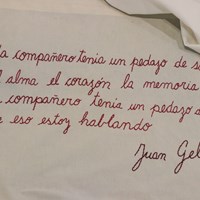 compañero tenia un pedazo de
alma el corazón la memoria
compañero tenia un pedazo
eso estoy hablando
Juan Gel